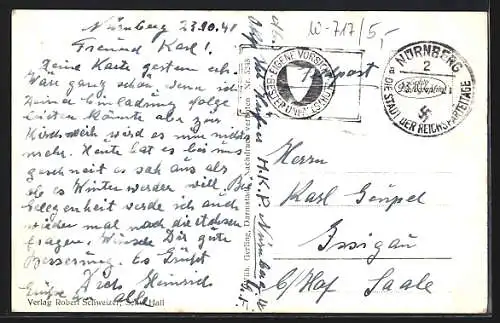 Nürnberg 23.10.41
Freund Karl!
Deine Karte gestern erh.
Wäre ganz schön wenn ich
Deiner Einladung folge
leisten könnte aber zur
Kirchweih wird es nun nichts
mehr. Heute hat es bei uns
geschneit es sah aus als
ob es Winter werden will. Bei
Gelegenheit werde ich auch
wieder mal nach
fragen. Wünsche Dir gute
Besserung. Es Grüßt
Dich Heinrich
Grüße an alle
Verlag Robert Schweizer, Schw. Hall
Gerling, Darmstadt Nachdruck verboten Nr.
H.K.P. Nürnberg W
W-717 5,-
EIGENE VORSICHT
Feldpost
NÜRNBERG
2
DIE STADT DER REICHSPARTEITAGE
Herrn
Karl Göspel
Issigau
b/Hof Saale